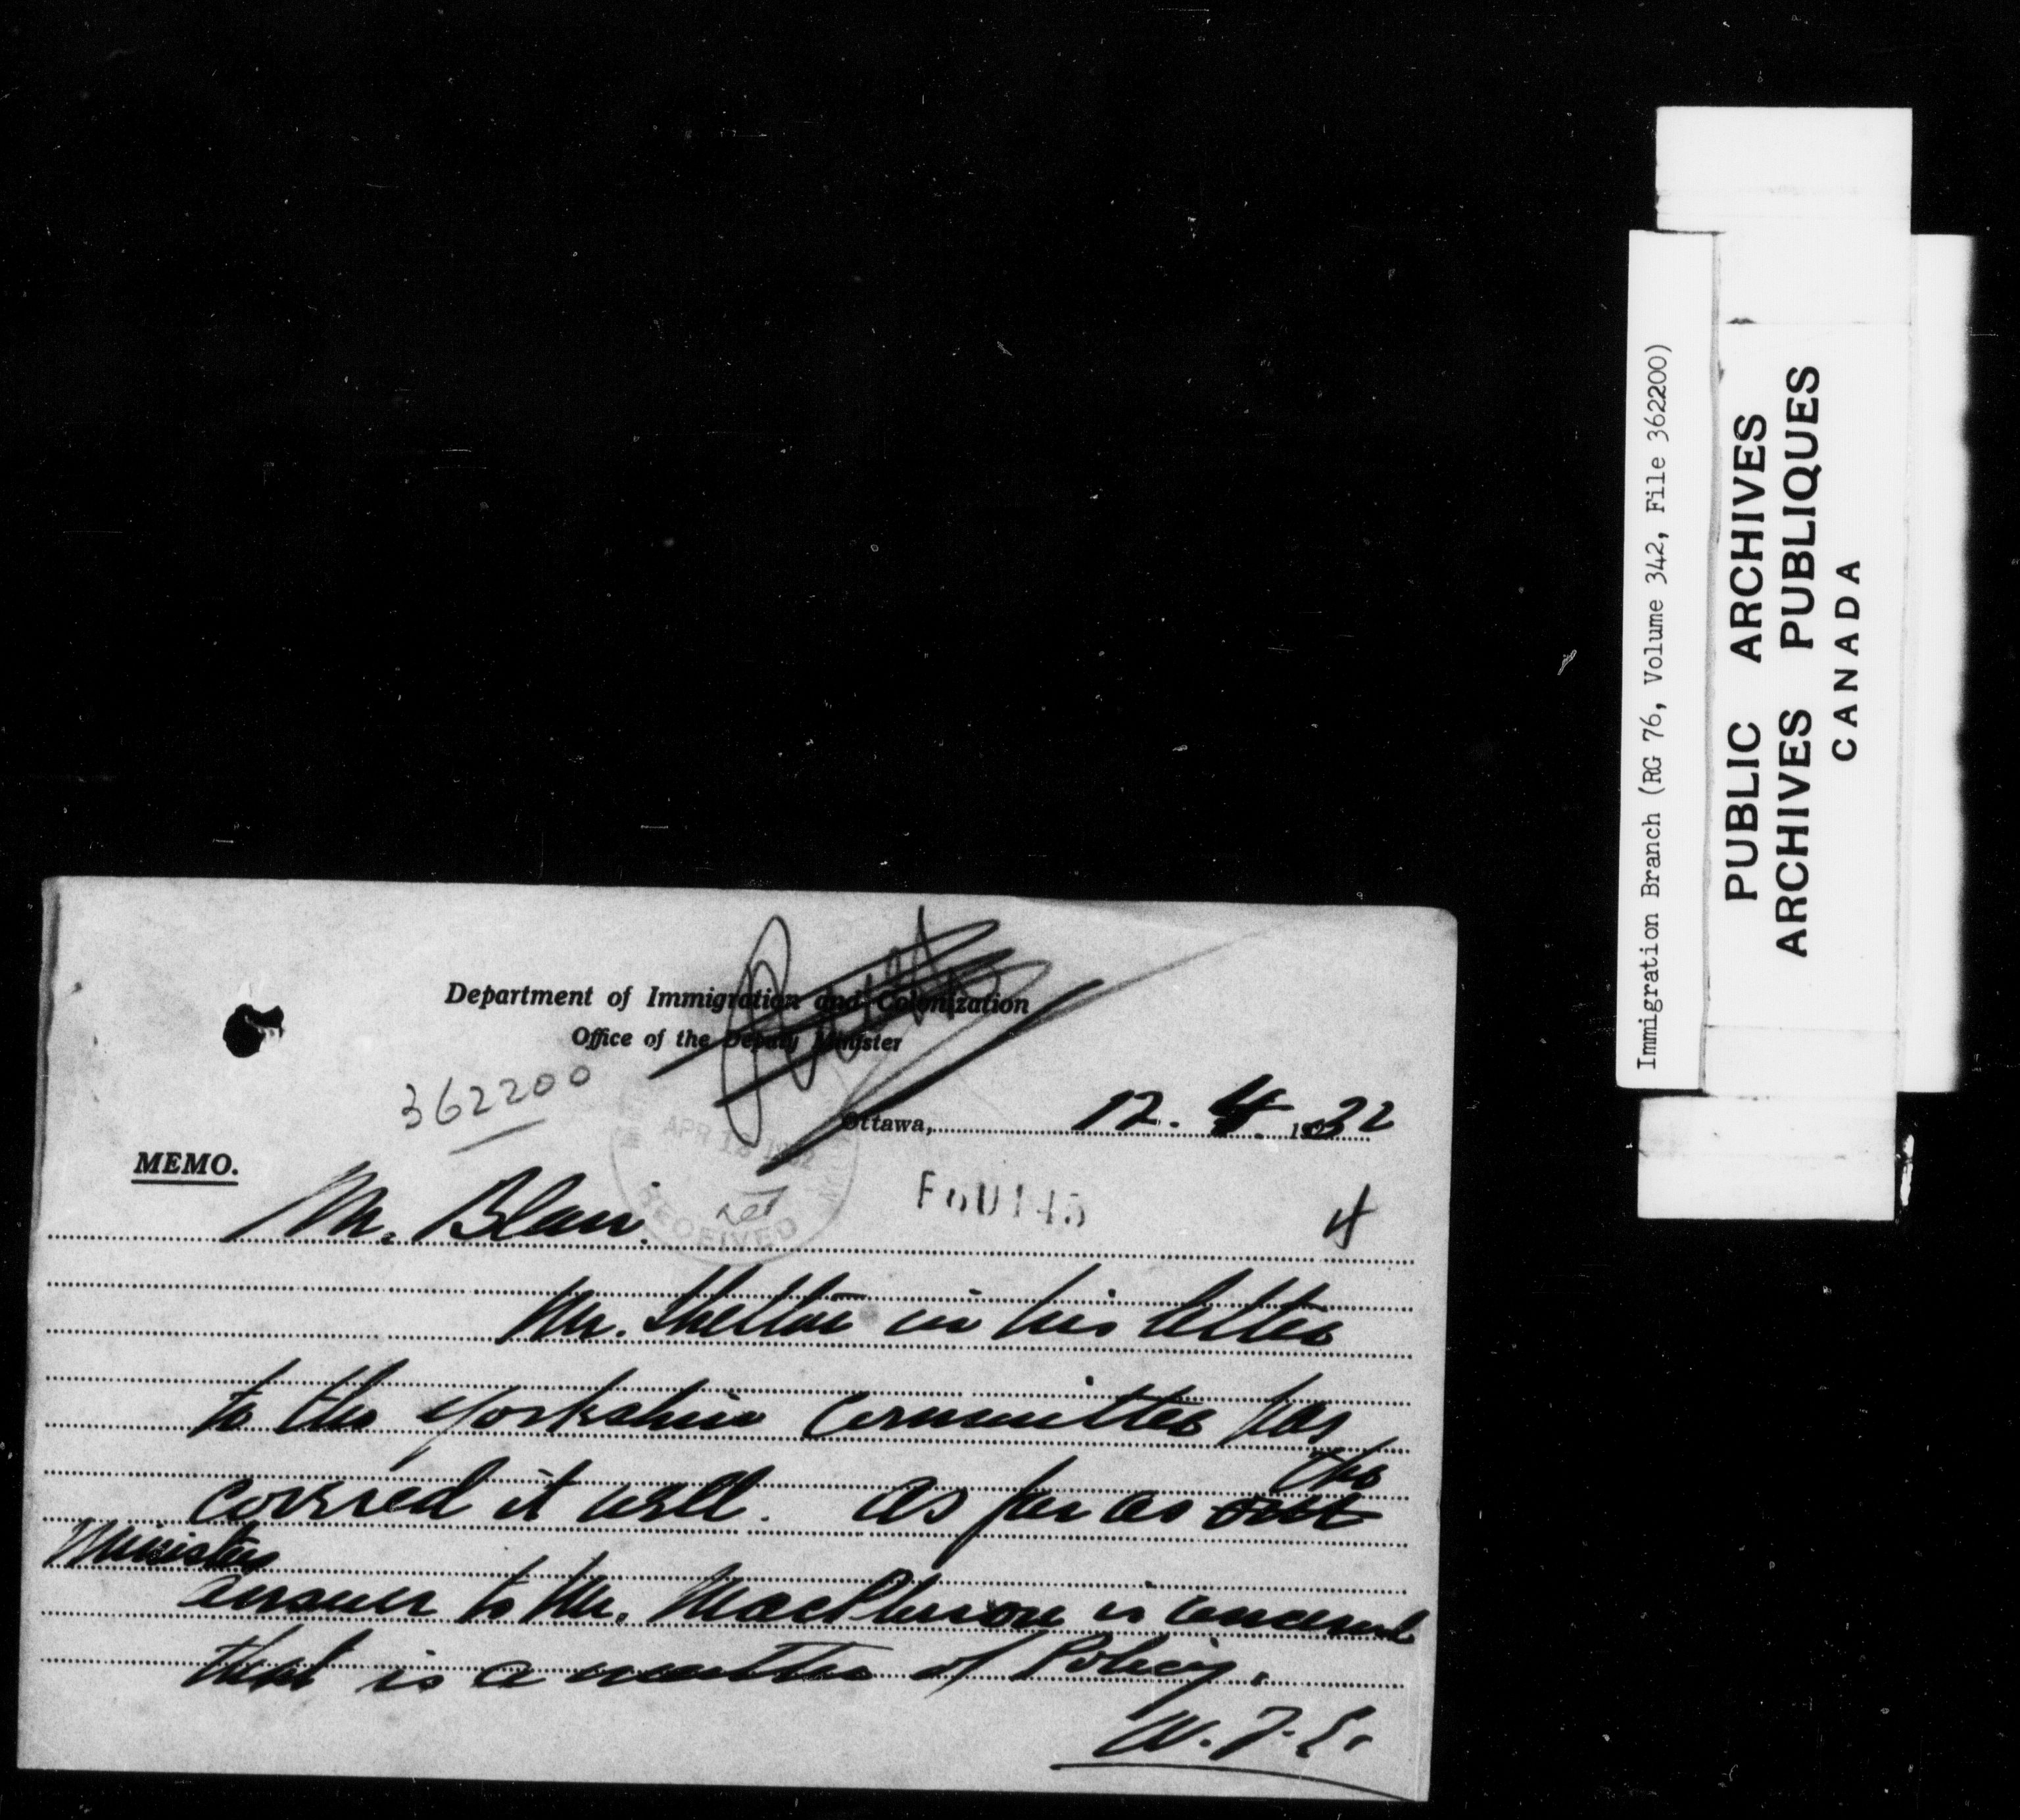 Department of Immigration and Colonization
Office of the Deputy Minister
362200
Ottawa, 12. 4. 1932
APR 13 1932
RECEIVED
MEMO.
Mr. Blair.
Mr. Skelton in his letter
to the Yorkshire Committee has
covered it well. As far as out the
Ministers
answer to Mr. MacPherson is concerned
that is a matter of Policy.
Immigration Branch (RG 76, Volume 342, File 362200)
PUBLIC ARCHIVES
ARCHIVES PUBLIQUES
CANADA